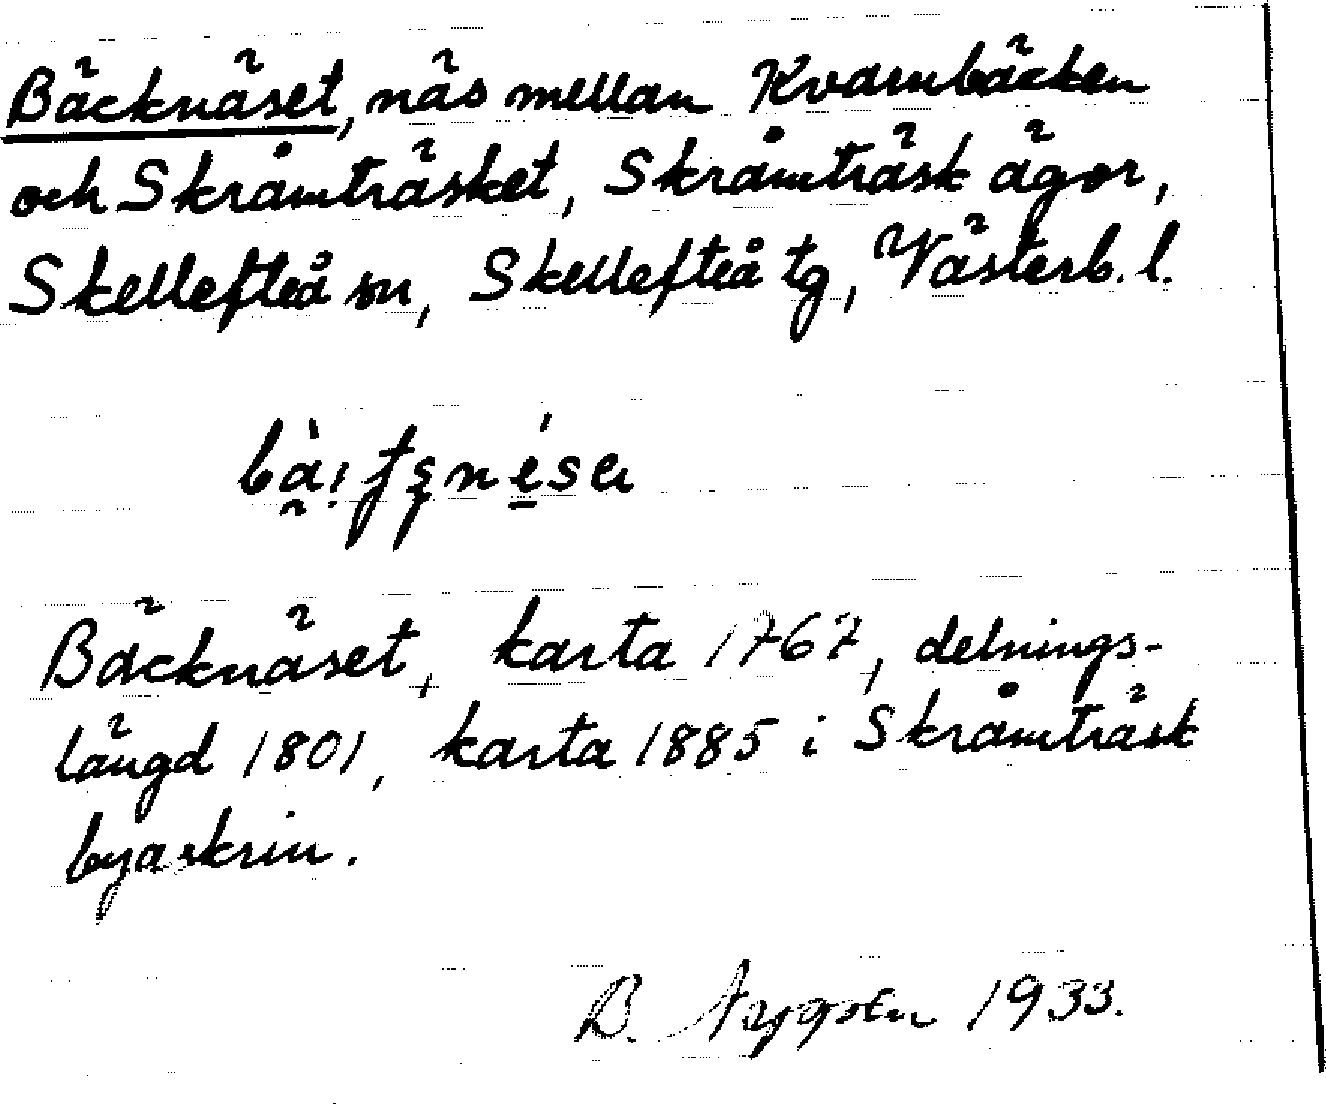 Bäcknäset, näs mellan Kvarnbäcken
och Skråmträsket, Skråmträsk ägor,
Skellefteå sn, Skellefteå tg, Västerb. l.
Bäcknäset, karta 1767, delnings-
längd 1801, karta 1885 i Skråmträsk
byaskrin.
B. 1933.